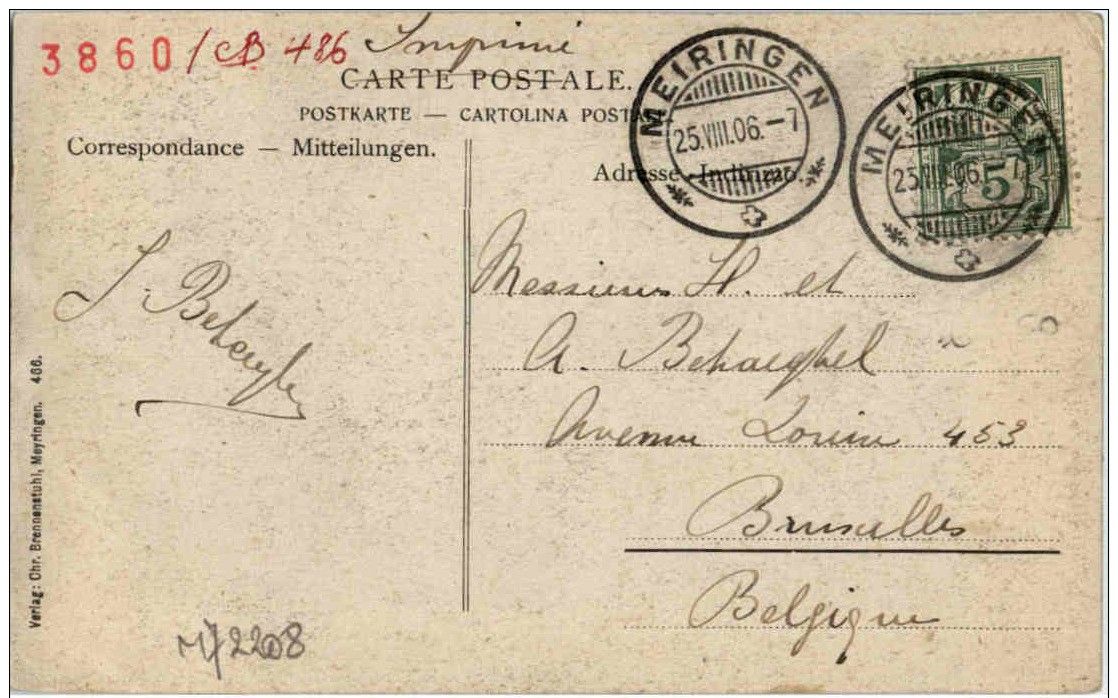 3860/CB 486 Imprimé
CARTE POSTALE.
POSTKARTE — CARTOLINA POSTALE
Correspondance — Mitteilungen.
Adresse - Indirizzo.
MEIRINGEN
25.VIII.06.-7
MEIRINGEN
25.VIII.06.-7
5
Messieurs H. et
A. Behaeghel
Avenue Louise 453
Bruxelles
Belgique
J. Behaeghel
Verlag: Chr. Brennenstuhl, Meyringen. 486.
2208